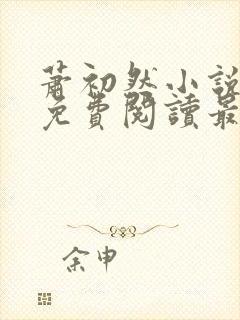 蕭初然小說
免費閱讀最
余申